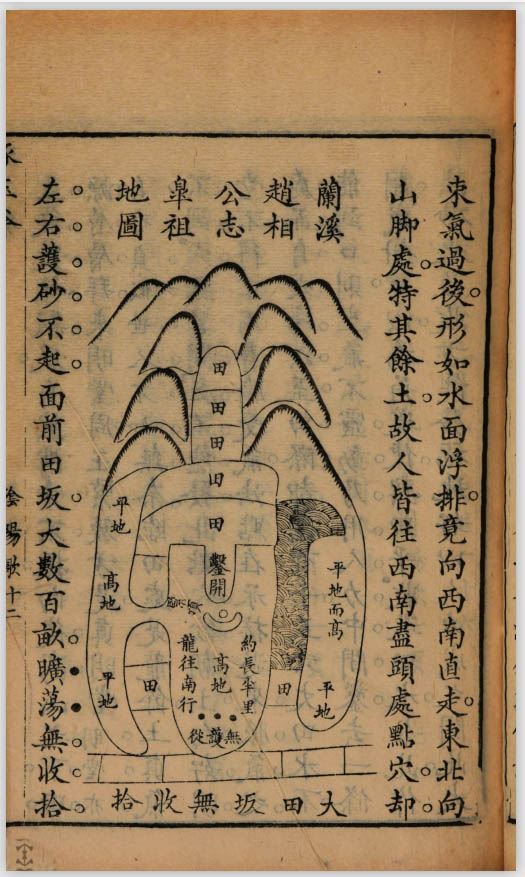 束氣過後形如水面浮排竟向西南直走東北向
山脚處特其餘土故人皆往西南盡頭處點穴却
蘭溪
趙相
公志
臯祖
地圖
田
田
田
田
田
平地
高地
平地
田
鑿開
平地而高
平地
田
約長半里
高地
龍往南行
無護從
大田坂無收拾
左右護砂不起面前田坂大數百畝曠蕩無收拾
陰陽歌十二